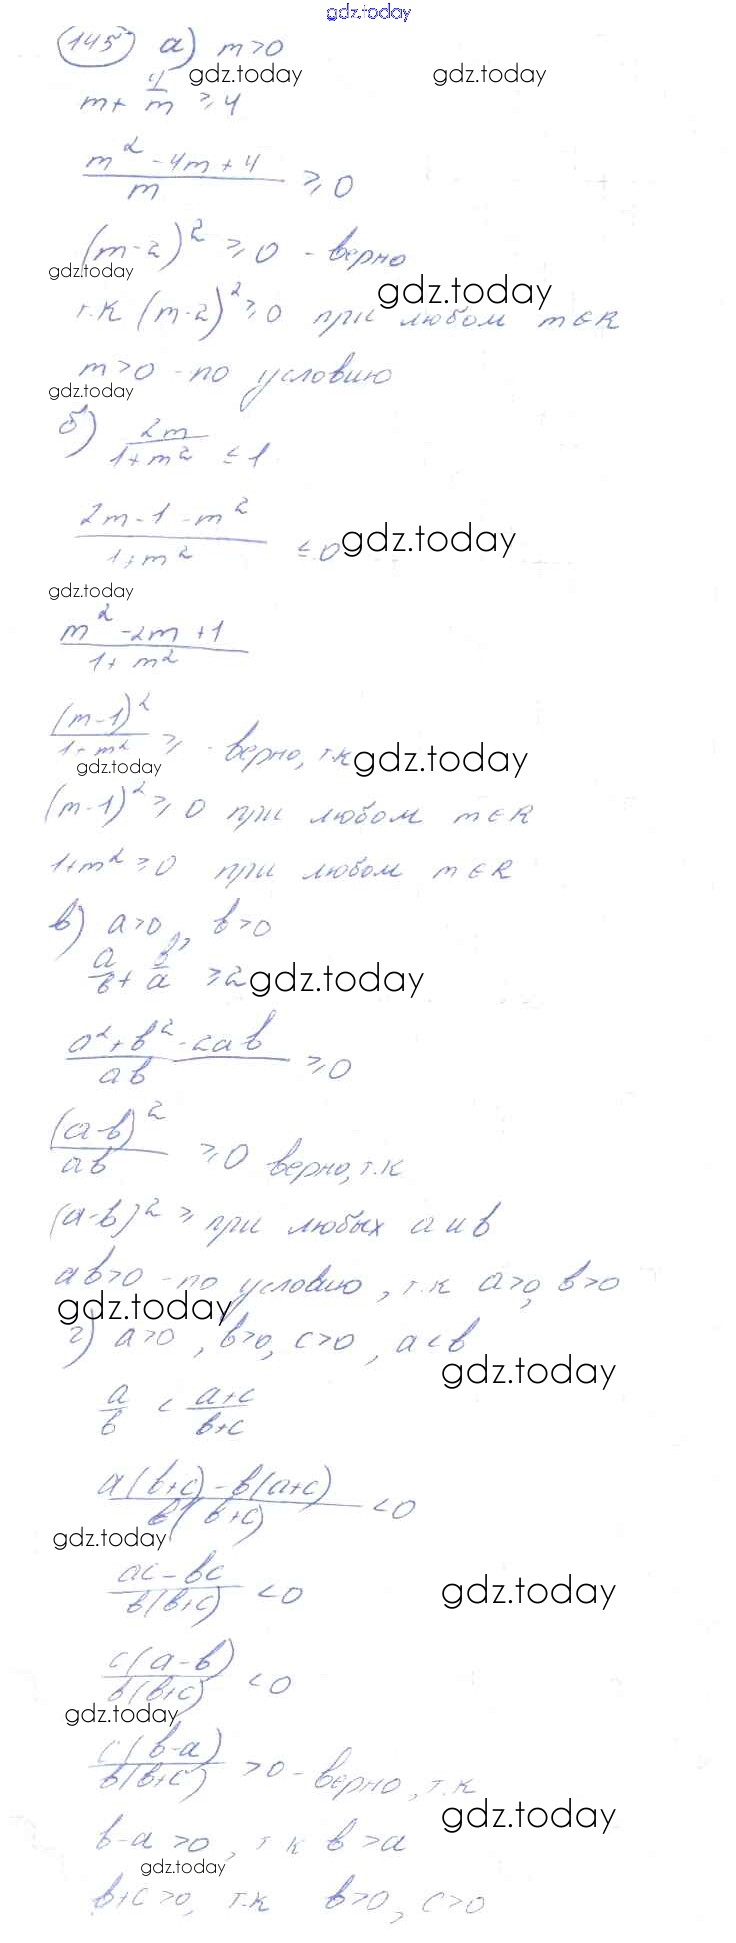 gdz.today
(145) а) m>0
gdz.today gdz.today
m + 4/m ≥ 4
(m² - 4m + 4)/m ≥ 0
(m-2)² ≥ 0 - верно
gdz.today
gdz.today
т.к (m-2)² ≥ 0 при любом m∈R
m>0 - по условию
gdz.today
б) 2m/(1+m²) ≤ 1
(2m-1-m²)/(1+m²) ≤ 0
gdz.today
gdz.today
(m² - 2m + 1)/(1+m²)
(m-1)²/(1+m²) ≥ - верно, т.к
gdz.today
gdz.today
(m-1)² ≥ 0 при любом m∈R
1+m² ≥ 0 при любом m∈R
в) a>0, b>0
a/b + b/a ≥ 2
gdz.today
(a²+b²-2ab)/(ab) ≥ 0
(a-b)²/(ab) ≥ 0 верно, т.к
(a-b)² ≥ при любых a и b
ab>0 - по условию, т.к a>0, b>0
gdz.today
г) a>0, b>0, c>0, a<b
gdz.today
a/b < (a+c)/(b+c)
(a(b+c)-b(a+c))/(b(b+c)) < 0
gdz.today
(ac-bc)/(b(b+c)) < 0
gdz.today
(c(a-b))/(b(b+c)) < 0
gdz.today
(c(b-a))/(b(b+c)) > 0 - верно, т.к
gdz.today
b-a>0, т к b>a
gdz.today
b+c>0, т.к b>0, c>0